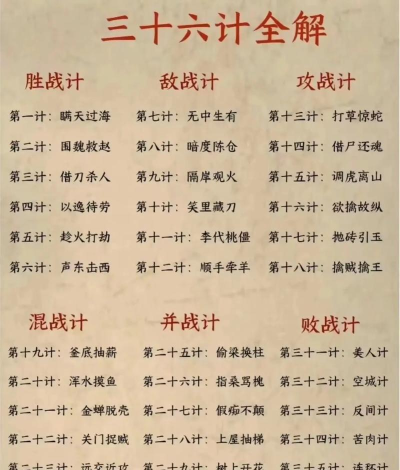 三十六计全解
胜战计
第一计：瞒天过海
第二计：围魏救赵
第三计：借刀杀人
第四计：以逸待劳
第五计：趁火打劫
第六计：声东击西
敌战计
第七计：无中生有
第八计：暗度陈仓
第九计：隔岸观火
第十计：笑里藏刀
第十一计：李代桃僵
第十二计：顺手牵羊
攻战计
第十三计：打草惊蛇
第十四计：借尸还魂
第十五计：调虎离山
第十六计：欲擒故纵
第十七计：抛砖引玉
第十八计：擒贼擒王
混战计
第十九计：釜底抽薪
第二十计：浑水摸鱼
第二十一计：金蝉脱壳
第二十二计：关门捉贼
第二十三计：远交近攻
并战计
第二十五计：偷梁换柱
第二十六计：指桑骂槐
第二十七计：假痴不颠
第二十八计：上屋抽梯
第二十九计：树上开花
败战计
第三十一计：美人计
第三十二计：空城计
第三十三计：反间计
第三十四计：苦肉计
第三十五计：连环计